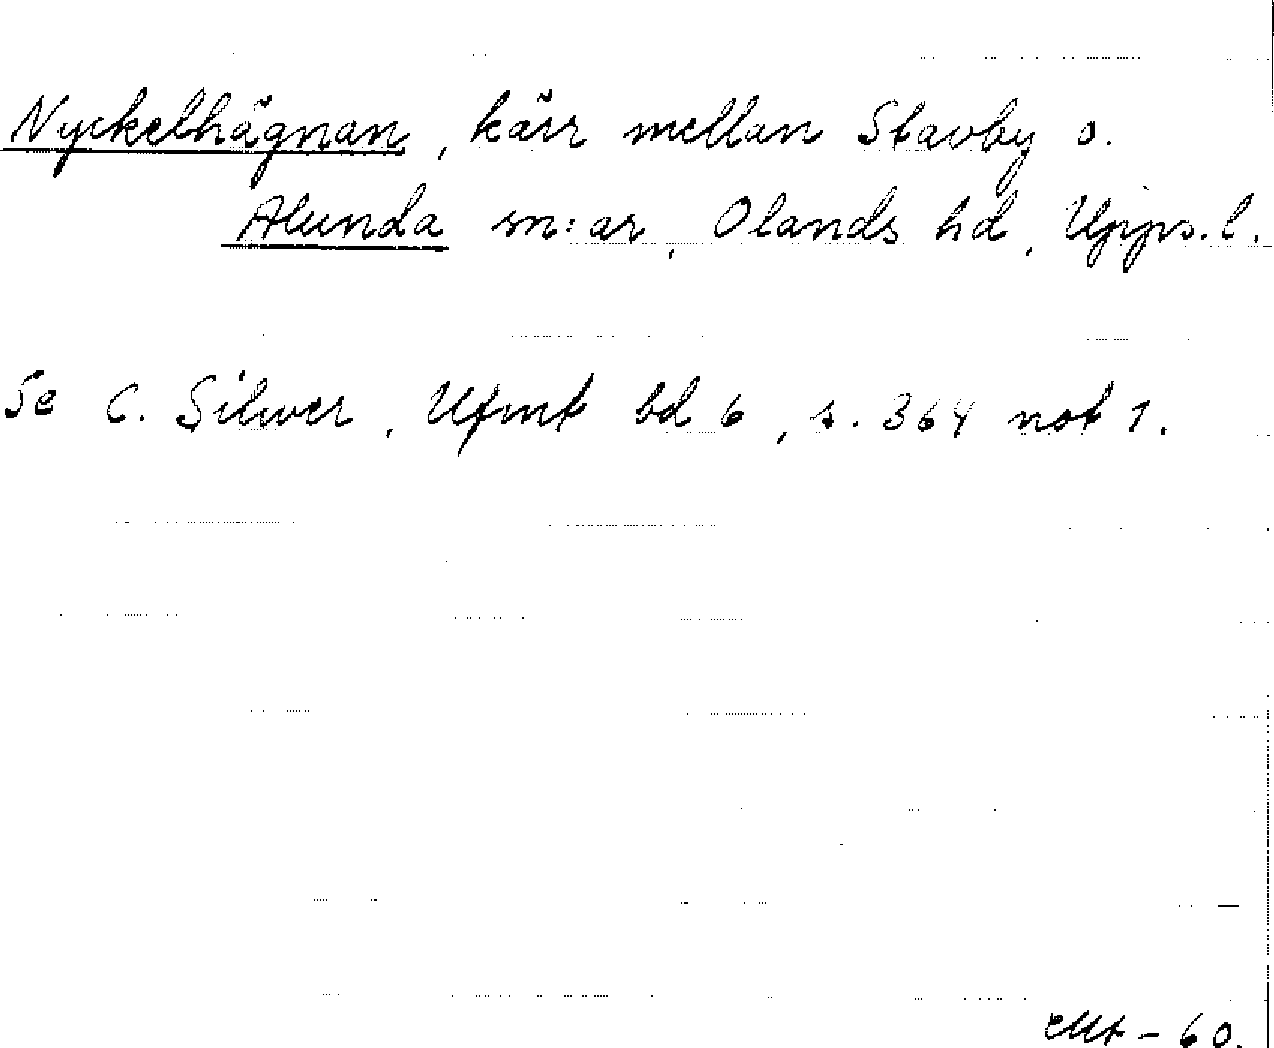 Nyckelhägnan, kärr mellan Stavby o.
Alunda sn:ar, Olands hd, Upps. l.
Se C. Silwer, Ufmt bd 6, s. 364 not 1.
- 60.